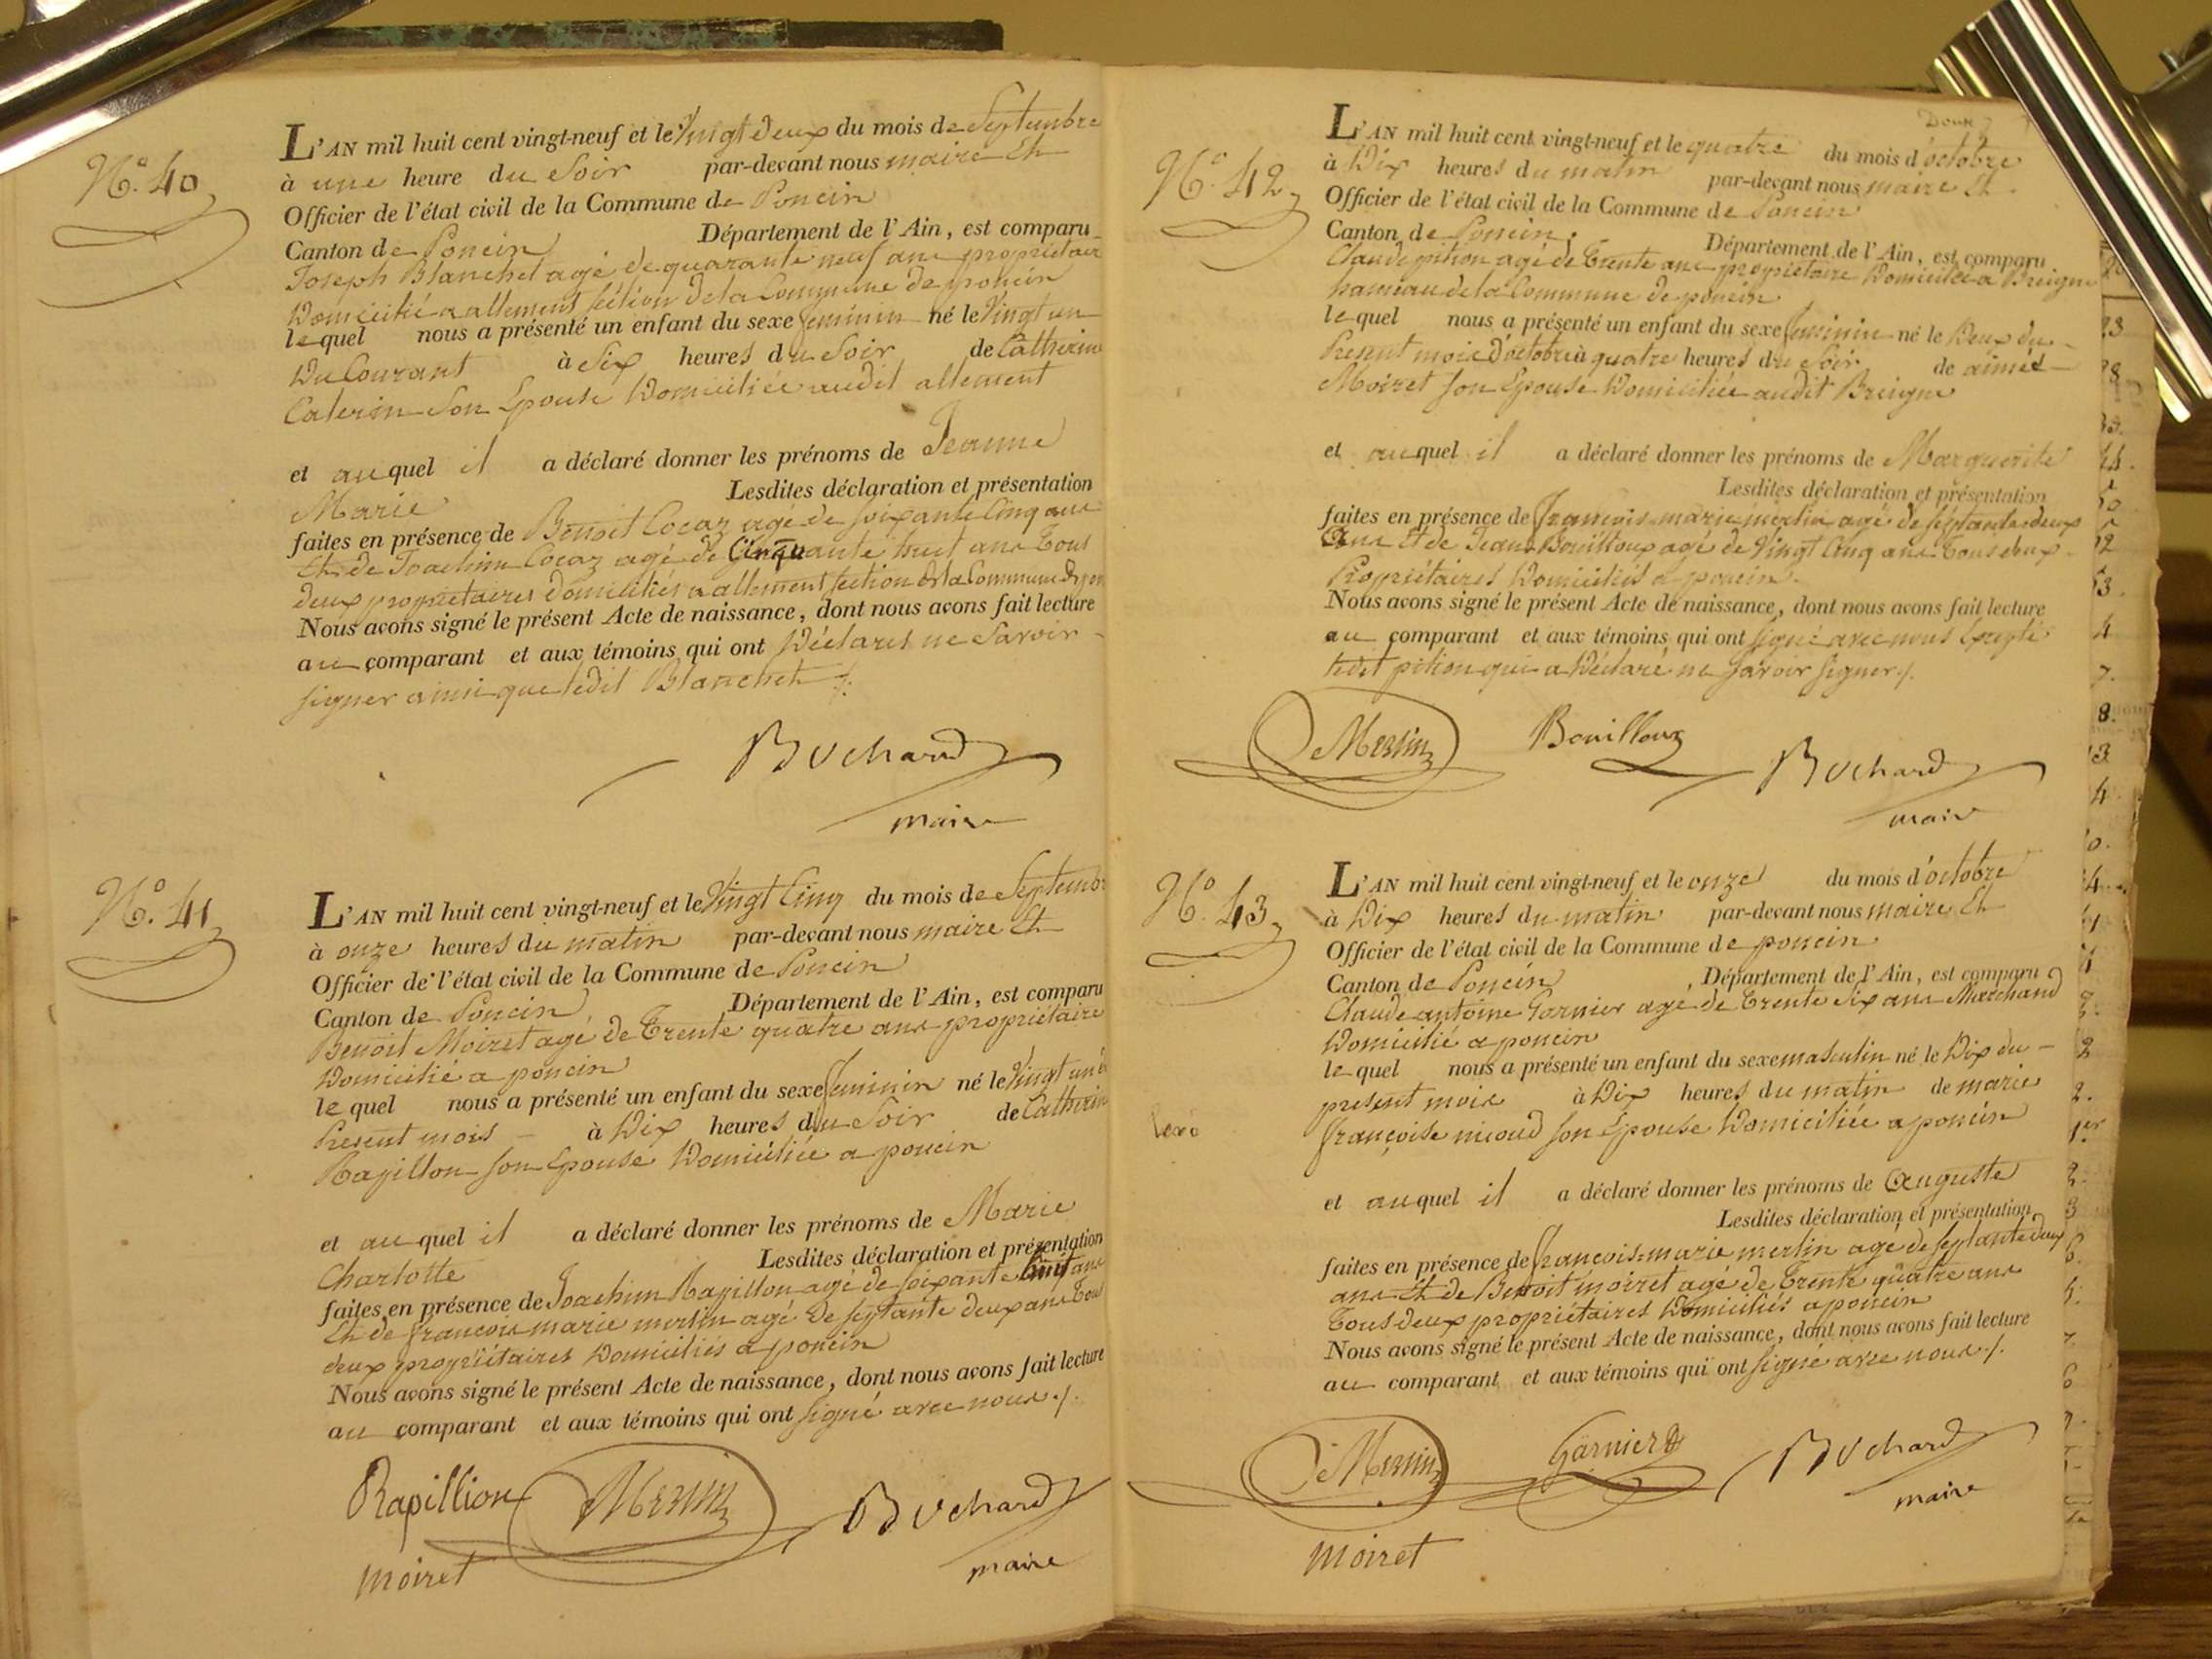 N.º 40
L'AN mil huit cent vingt-neuf et le Vingt deux du mois de Septembre
à une heure du Soir par-devant nous maire Et
Officier de l'état civil de la Commune de Poncin
Canton de Poncin Département de l'Ain, est comparu
Joseph Blanchet agé de quarante neuf ans propriétaire
Domicilié a allement séction de la Commune de poncin
le quel nous a présenté un enfant du sexe feminin né le Vingt un
Du Courant à Six heures du Soir de Catherine
Caterin Son Epouse Domiciliée audit allement
et auquel il a déclaré donner les prénoms de Jeanne
Marie Lesdites déclaration et présentation
faites en présence de Benoit Cocaz agé de soixante Cinq ans
Et de Joachim Cocaz agé de Cinquante huit ans Tous
deux propriétaires domiciliés a allement section de la Commune de
Nous avons signé le présent Acte de naissance, dont nous avons fait lecture
au comparant et aux témoins qui ont Déclarés ne Savoir
signer ainsi que ledit Blanchet ./.
Bochard
maire
N.º 41
L'AN mil huit cent vingt-neuf et le Vingt Cinq du mois de Septembre
à onze heures du matin par-devant nous maire Et
Officier de l'état civil de la Commune de Poncin
Canton de Poncin Département de l'Ain, est comparu
Benoit Moiret agé de Trente quatre ans propriétaire
Domicilié a poncin
le quel nous a présenté un enfant du sexe feminin né le Vingt un
Present mois à Dix heures du Soir de Catherine
Rapillon son Epouse Domiciliée a poncin
et auquel il a déclaré donner les prénoms de Marie
Charlotte Lesdites déclaration et présentation
faites en présence de Joachim Rapillon agé de soixante ans
Et de françois marie merlin agé De septante deux ans Tous
deux propriétaires Domiciliés a poncin
Nous avons signé le présent Acte de naissance, dont nous avons fait lecture
au comparant et aux témoins qui ont signé avec nous ./.
Rapillion Merlin Bochard
moiret maire
N.º 42
L'AN mil huit cent vingt-neuf et le quatre du mois d'octobre
à Dix heures du matin par-devant nous maire Et
Officier de l'état civil de la Commune de Poncin
Canton de Poncin Département de l'Ain, est comparu
Claude pition agé de Trente ans propriétaire Domicilié a Breigne
hameau de la Commune de poncin
le quel nous a présenté un enfant du sexe feminin né le Deux du
Present mois D'octobre à quatre heures du Soir de aimée
Moiret son Epouse Domiciliée audit Breigne
et auquel il a déclaré donner les prénoms de Marguerite
Lesdites déclaration et présentation
faites en présence de françois marie merlin agé de séptante deux
ans Et de Jean Bouilloux agé de Vingt Cinq ans Tous deux
Propriétaires Domiciliés a poncin
Nous avons signé le présent Acte de naissance, dont nous avons fait lecture
au comparant et aux témoins qui ont signé avec nous Excepté
ledit pition qui a Déclaré ne Savoir signer ./.
Merlin Bouilloux Bochard
maire
N.º 43
L'AN mil huit cent vingt-neuf et le onze du mois d'octobre
à Dix heures du matin par-devant nous maire Et
Officier de l'état civil de la Commune de poncin
Canton de Poncin Département de l'Ain, est comparu
Claude antoine Garnier agé de Trente Six ans Marchand
Domicilié a poncin
le quel nous a présenté un enfant du sexe masculin né le Dix du
present mois à Dix heures du matin de marie
françoise nicoud son Epouse Domiciliée a poncin
et auquel il a déclaré donner les prénoms de Auguste
Lesdites déclaration et présentation
faites en présence de françois marie merlin agé de septante deux
ans Et de Benoit moiret agé de Trente quatre ans
Tous deux propriétaires Domiciliés a poncin
Nous avons signé le présent Acte de naissance, dont nous avons fait lecture
au comparant et aux témoins qui ont signé avec nous ./.
Merlin Garnier Bochard
moiret maire